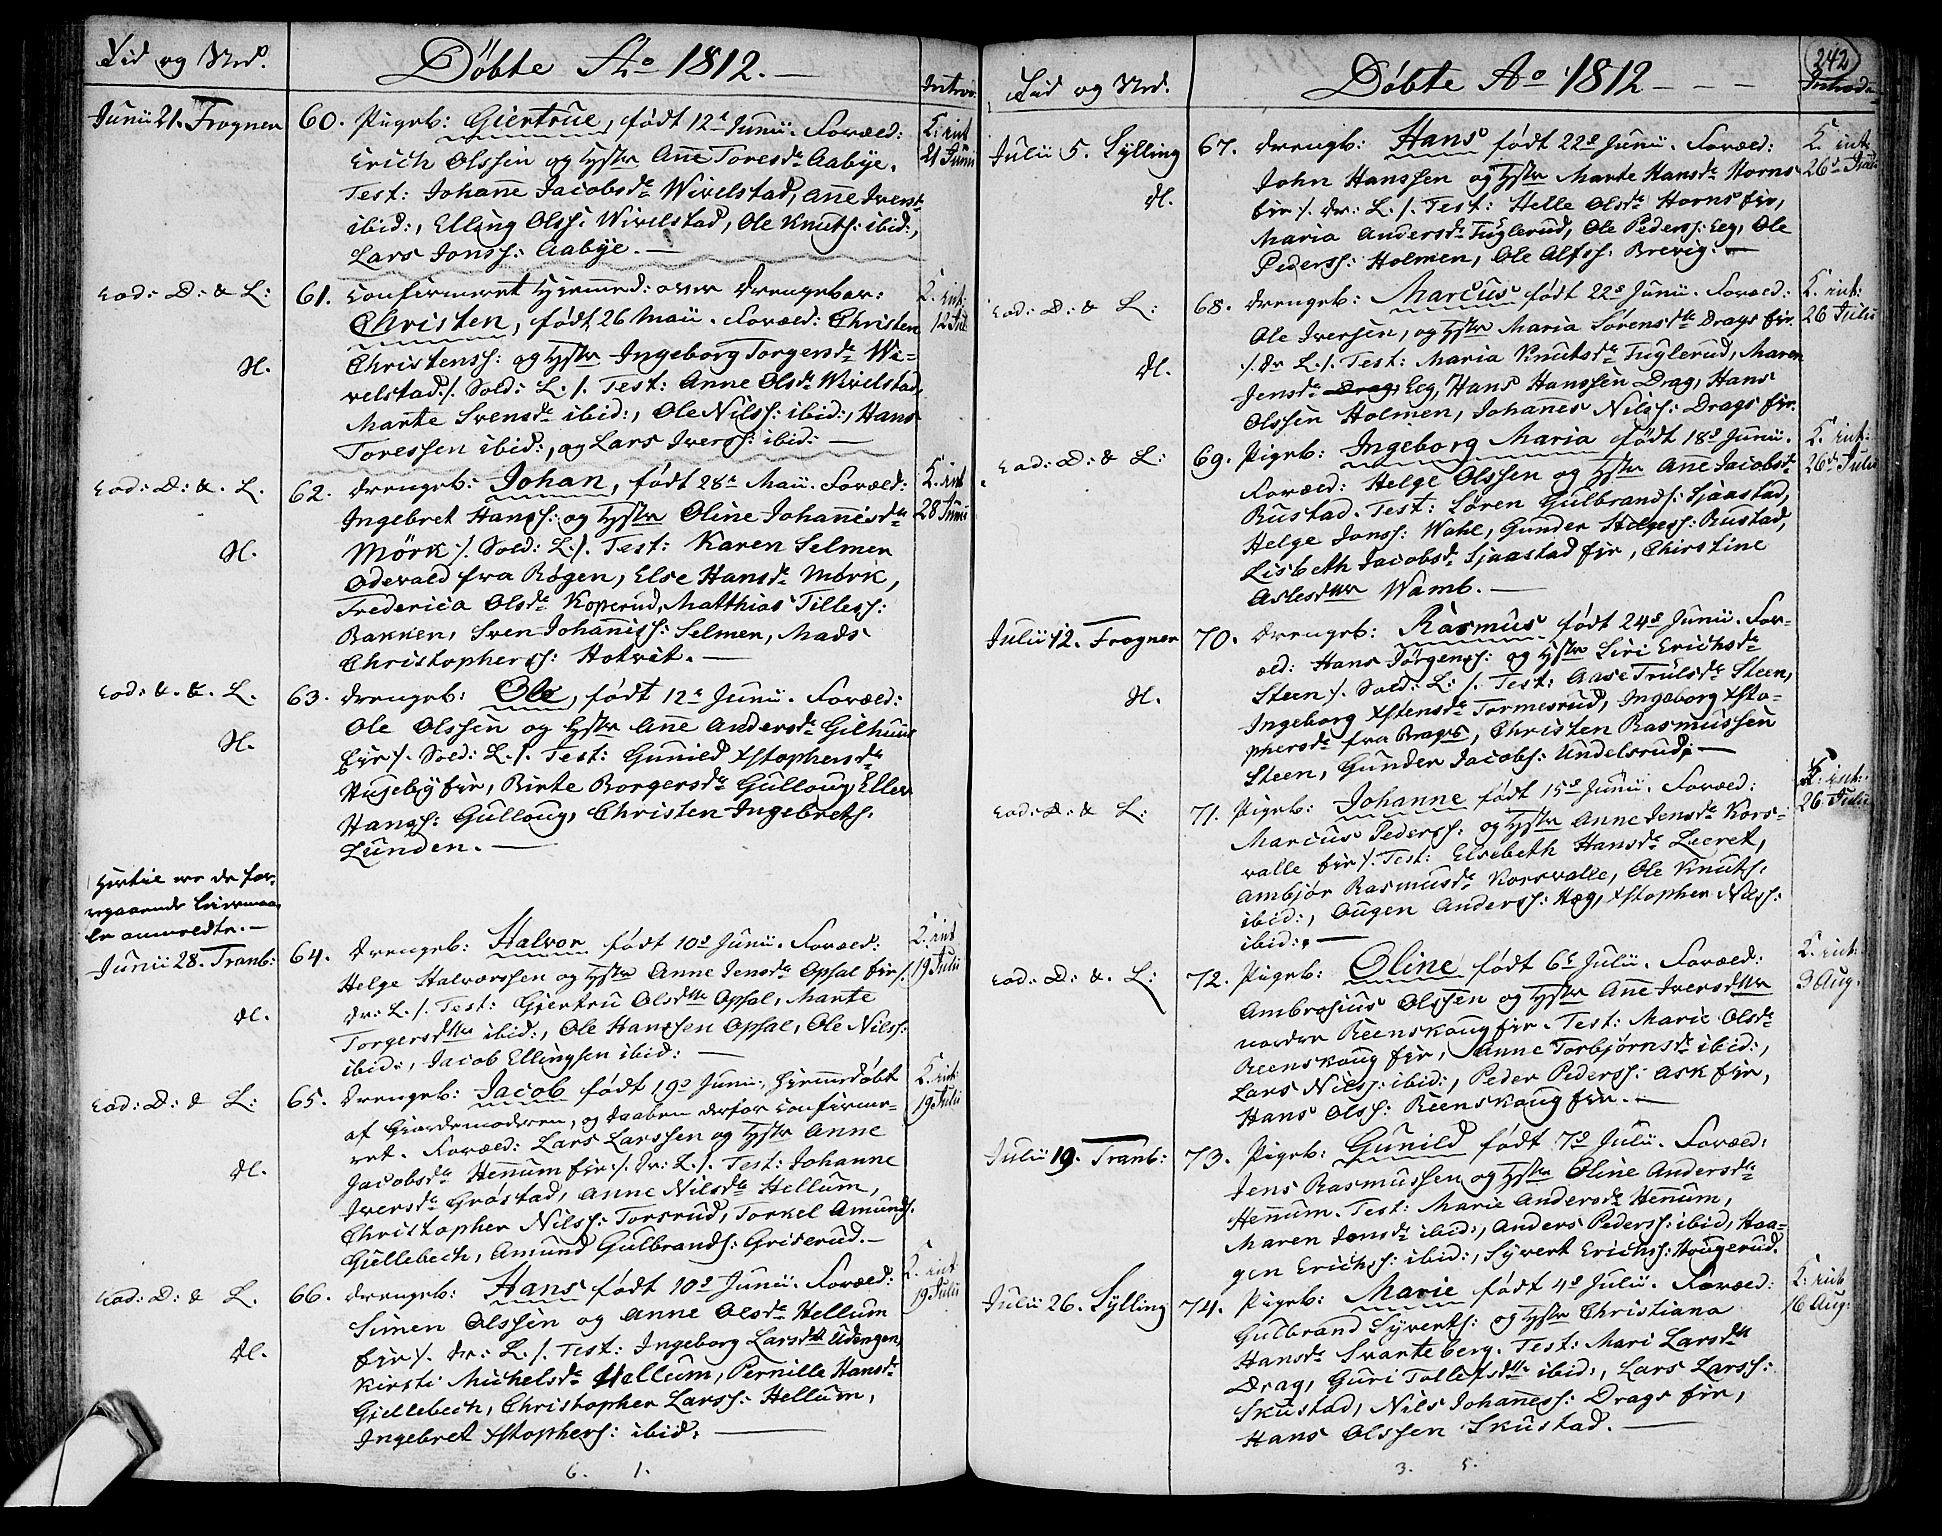 Tid og Sted.
Döbte Aº 1812.
Introd:
Junii 21. Frogner
60. Pigeb: Giertrue, født 12te Junii. Foræld:
Erich Olssen og Hstr Anne Toresdr Aabye.
Test: Johanne Jacobsdr Wivelstad, Anne Iversdr
ibid:, Elling Olss: Wivelstad, Ole Knuts: ibid:,
Lars Jonss: Aabye.
K. int
21 Junii
Eod: D: & L:
61. Confirmeret Hiemmed: over Drengebar:
Christen, født 26 Maii. Foræld: Christen
Christenss: og Hstr Ingeborg Torgersdr Wi-
velstad ./. Sold: L ./. Test: Anne Olsdr Wivelstad,
Marte Svensdr ibid:, Ole Nilss: ibid:, Hans
Toressen ibid:, og Lars Iverss: ibid:
K. int:
12 Jul
Eod: D: & L.
62. Drengeb: Johan, født 28de Maii. Foræld:
Ingebret Hanss: og Hstr Oline Johannisdr
Mörk ./. Sold: L ./. Test: Karen Selmer
Odevald fra Røgen, Else Hansdr Mörk,
Frederica Olsdr Kopperud, Matthias Tilless:
Bakken, Sven Johanniss: Selmer, Mads
Christopherss: Hotvet.
K. int
28 Junii
Eod: D. &. L.
63. Drengeb: Ole, født 12te Junii. Foræld:
Ole Olssen og Hstr Anne Andersdr Gilhuus
Eir ./. Sold: L ./. Test: Gunild Xstophersdr
Huseby Eir, Birte Borgersdr Gulloug, Eller
Hanss: Gulloug, Christen Ingebrets.
Lunden.
Hertil ere de for-
egaaende Leiermaa-
le anmeldte.
Junii 28. Tranb:
64. Drengeb: Halvor født 10de Junii. Foræld:
Helge Halvorssen og Hstr Anne Jensdr Opsal Eir ./.
Dr: L ./. Test: Giertru Olsdtr Opsal, Marte
Torgersdtr ibid:, Ole Hanssen Opsal, Ole Nilss:
ibid:, Jacob Ellingsen ibid:
K. int
19 Julii
Eod: D: & L:
65. Drengeb: Jacob født 19de Junii, Hiemmedøbt
af Giordemoderen, og Daaben derfor Confirme-
ret. Foræld: Lars Larssen og Hstr Anne
Jacobsdr Hennum Eir ./. Dr: L ./. Test: Johanne
Iversdr Gröstad, Anne Nilsdr Hellum,
Christopher Nilss: Torsrud, Torkel Amunds.
Gjellebech, Amund Gulbrands: Griserud.
K. int:
19 Julii
Eod: D: & L.
66. Drengeb: Hans født 10de Junii. Foræld:
Simen Olssen og Anne Olsdr Hellum
Eir ./. Dr: L ./. Test: Ingeborg Larsdtr Udengen,
Kirsti Michelsdr Hellum, Pernille Hansdr
Gjellebech, Christopher Larss: Hellum,
Ingebret Xstophers: ibid:
K. int
19 Julii
6. 1.
242
Tid og Sted.
Döbte Aº 1812
Introd:
Julii 5. Sylling
67. Drengb: Hans født 22de Junii. Foræld:
John Hanssen og Hstr Marte Hansdr Horns
Eir ./. Dr: L ./. Test: Helle Olsdr Horns Eir,
Maria Andersdr Fuglerud, Ole Peders: Eeg, Ole
Pederss: Holmen, Ole Alfss: Brevig:
K. int
26de Julii
Eod: D: & L:
68. Drengeb: Marcus født 22de Junii. Foræld:
Ole Iversen, og Hstr Maria Sørensdtr Drags Eir
./. Dr L ./. Test: Maria Knutsdr Fuglerud, Maren
Jensdr Drag, Eeg, Hans Hanssen Drag, Hans
Olssen Holmen, Johannes Nilss: Drags Eir.
K. int:
26 Julii
Eod: D: & L:
69. Pigeb: Ingeborg Maria født 18de Junii.
Foræld: Helge Olssen og Hstr Anne Jacobsdr
Rustad. Test: Søren Gulbrands: Sjaastad,
Helge Jonss: Wahl, Gunder Helgess: Rustad,
Lisbeth Jacobsdr Sjaastad Eir, Chirstine
Aslesdtr Wamb.
K. int:
26de Julii
Julii 12. Frogner
70. Drengeb: Rasmus født 24de Junii. For-
æld: Hans Jörgens: og Hstr Siri Erichsdr
Steen ./. Sold: L: ./. Test: Aase Trulsdr Steen,
Ingeborg Xstensdr Tormesrud, Ingeborg Xsto-
phersdr fra Brages, Christen Rasmussen
Steen, Gunder Jacobs: Undelsrud.
Eod: D: & L:
71. Pigeb: Johanne født 15de Junii. Foræld:
Marcus Pederss: og Hstr Anne Jensdr Kors-
valle Eir ./. Test: Elsebeth Hansdr Leeret,
Ambjør Rasmusdr Korsvalle, Ole Knuts.
ibid:, Ougen Anderss: Hæg, Xstopher Nilss:
ibid:.
K. int:
26 Julii
Eod: D: &. L:
72. Pigeb: Oline født 6te Julii. Foræld:
Ambrosius Olssen og Hstr Anne Iversdtr
nordre Reenskoug Eir. Test: Marie Olsdr
Reenskoug Eir, Anne Torbjørnsdr ibid:,
Lars Nilss: ibid:, Peder Pederss: Ask Eir,
Hans Olss: Reenskoug Eir.
K. int:
9 Aug.
Julii 19. Tranb:
73. Pigeb: Gunild født 7de Julii. Foræld:
Jens Rasmussen og Hstr Oline Andersdr
Hennum. Test: Marie Andersdr Hennum,
Maren Jensdr ibid:, Anders Pederss: ibid, Haa-
gen Erichss: ibid:, Syvert Erichss: Hougerud.
Julii 26. Sylling
74. Pigeb: Marie født 4de Julii. Foræld:
Gulbrand Syverts: og Hstr Christiana
Hansdr Svarteberg. Test: Mari Larsdtr
Drag, Guri Tollefsdtr ibid:, Lars Larss:
Skustad, Nils Johanness: Drags Eir,
Hans Olssen Skustad.
K: int
16 Aug:
3. 5.